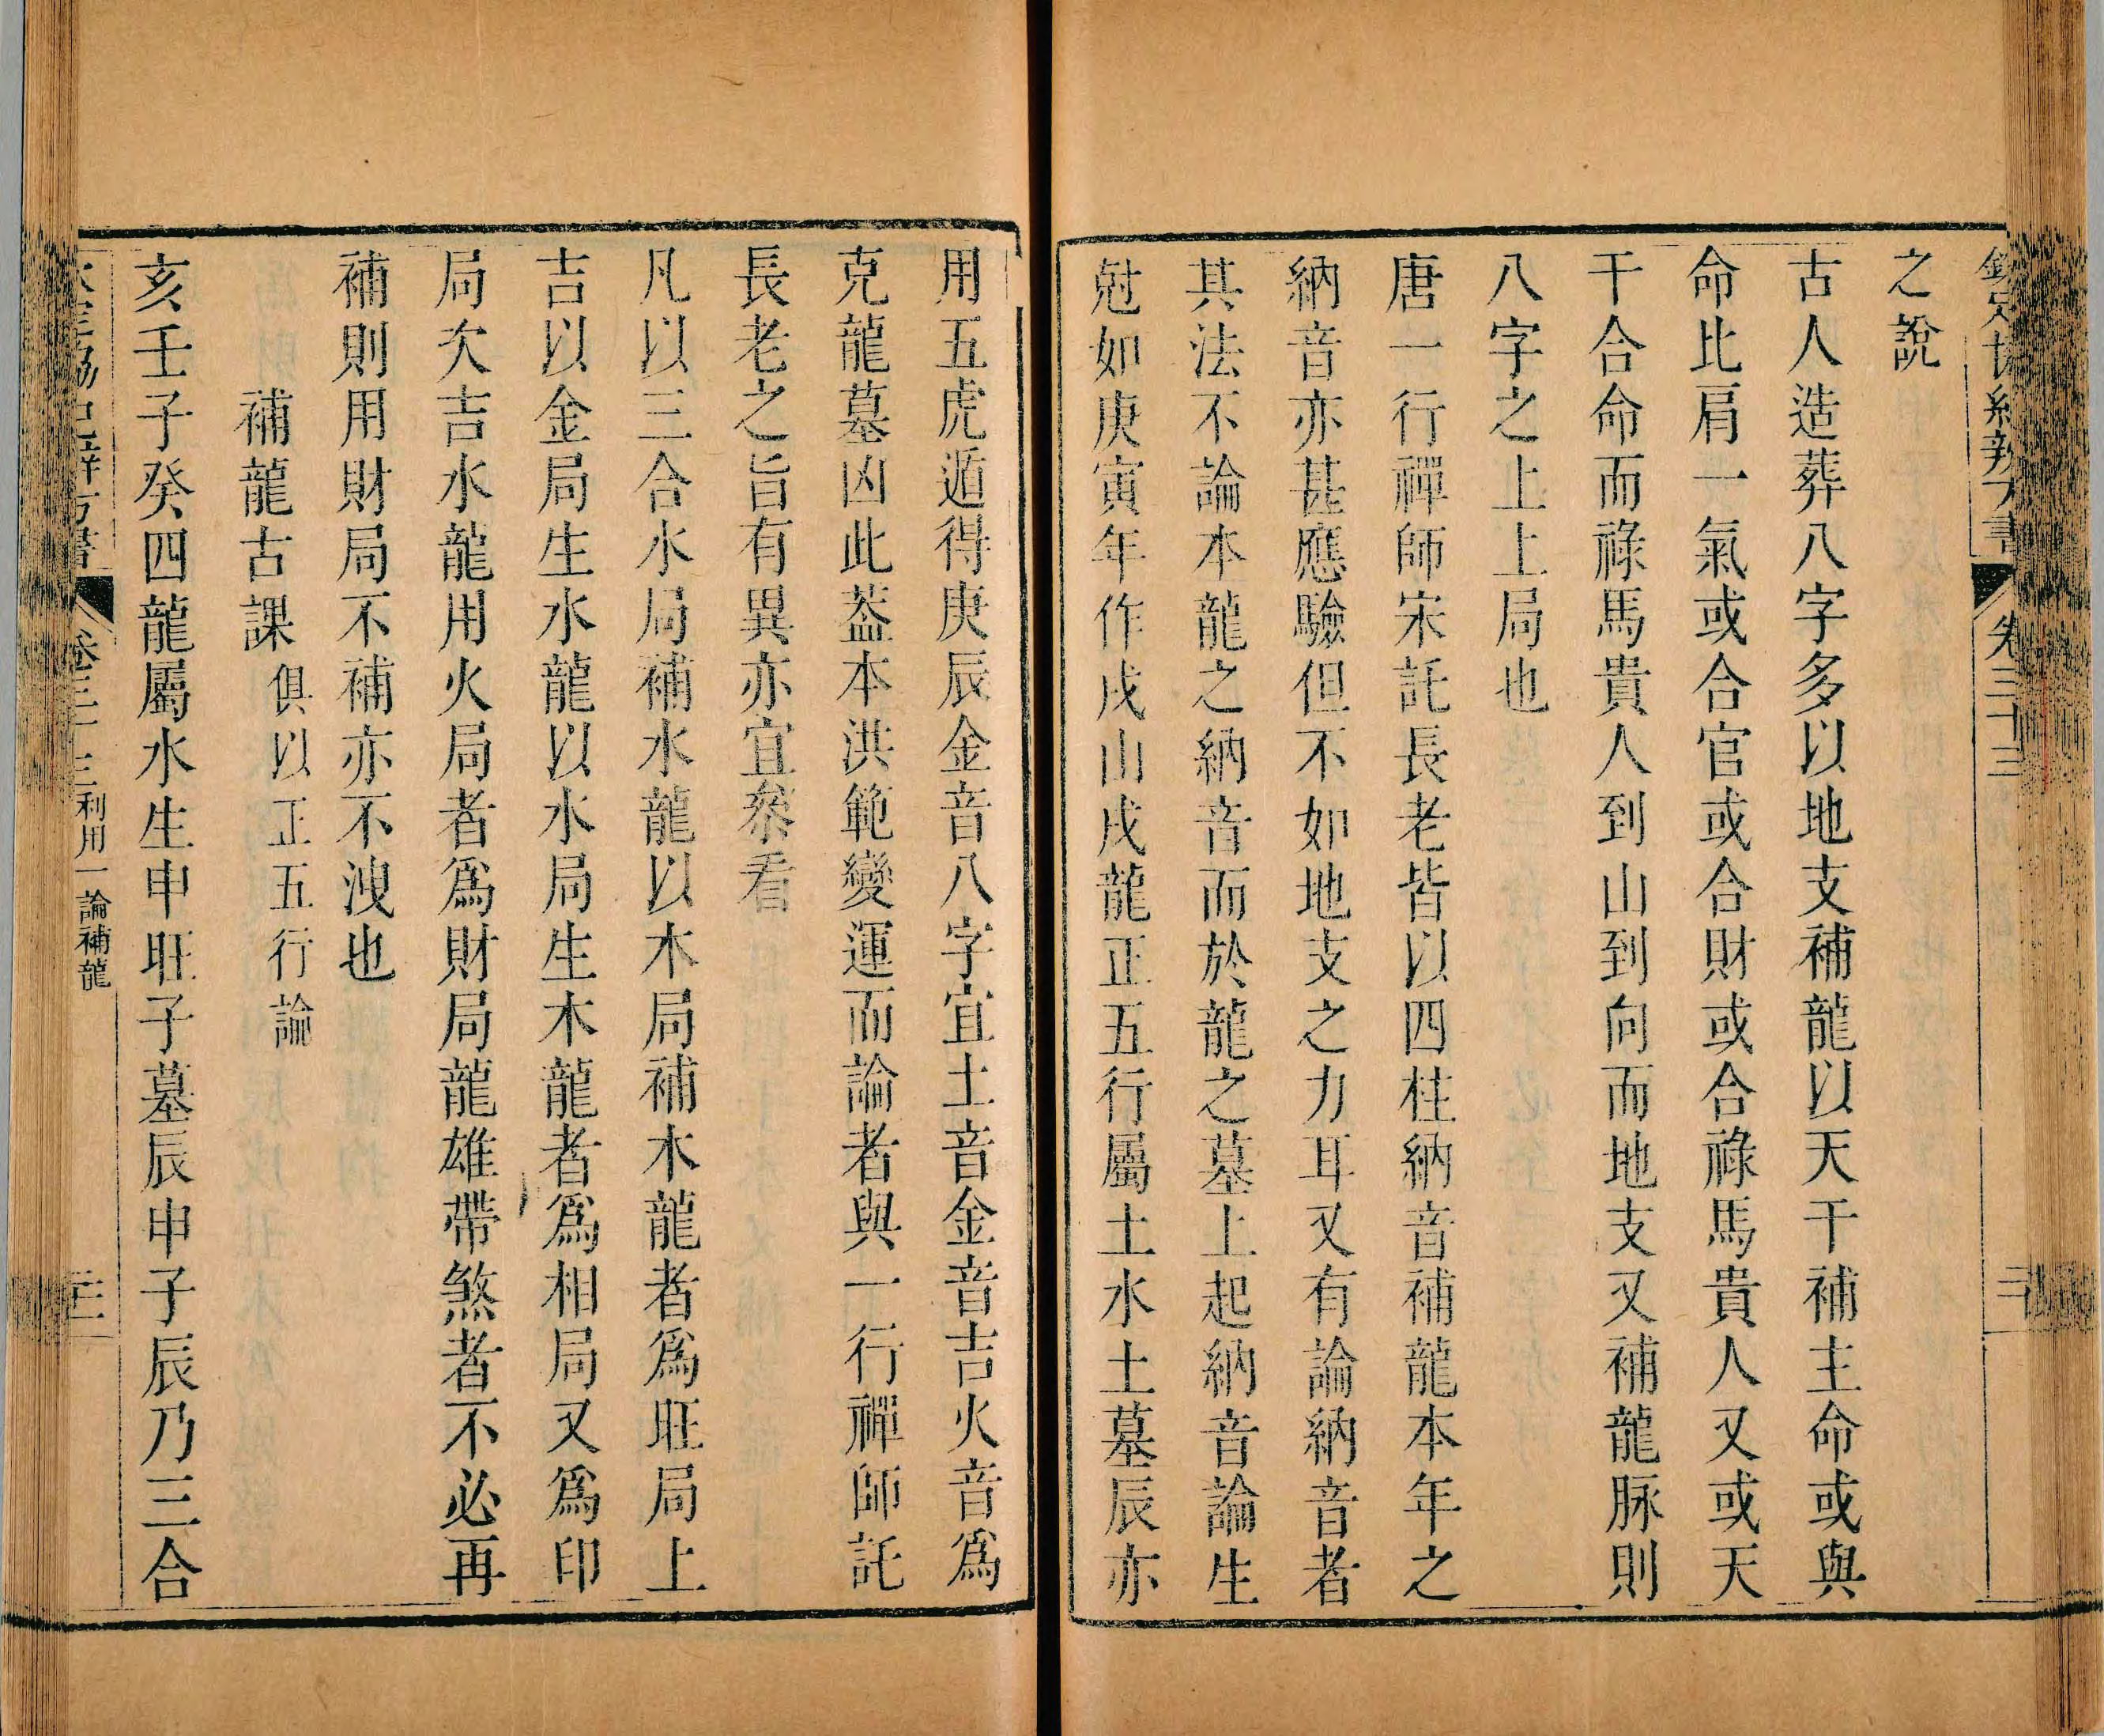 之說
古人造葬八字多以地支補龍以天干補主命或與
命比肩一氣或合官或合財或合祿馬貴人又或天
干合命而祿馬貴人到山到向而地支又補龍脉則
八字之上上局也
唐一行禪師宋託長老皆以四柱納音補龍本年之
納音亦甚應驗但不如地支之力耳又有論納音者
其法不論本龍之納音而於龍之墓上起納音論生
尅如庚寅年作戌山戌龍正五行屬土水土墓辰亦
用五虎遁得庚辰金音八字宜土音金音吉火音爲
克龍墓凶此葢本洪範變運而論者與一行禪師託
長老之旨有異亦宜叅看
凡以三合水局補水龍以木局補木龍者爲旺局上
吉以金局生水龍以水局生木龍者爲相局又爲印
局次吉水龍用火局者爲財局龍雄帶煞者不必再
補則用財局不補亦不洩也
補龍古課 俱以正五行論
亥壬子癸四龍屬水生申旺子墓辰申子辰乃三合
卷三十三 利用一論補龍